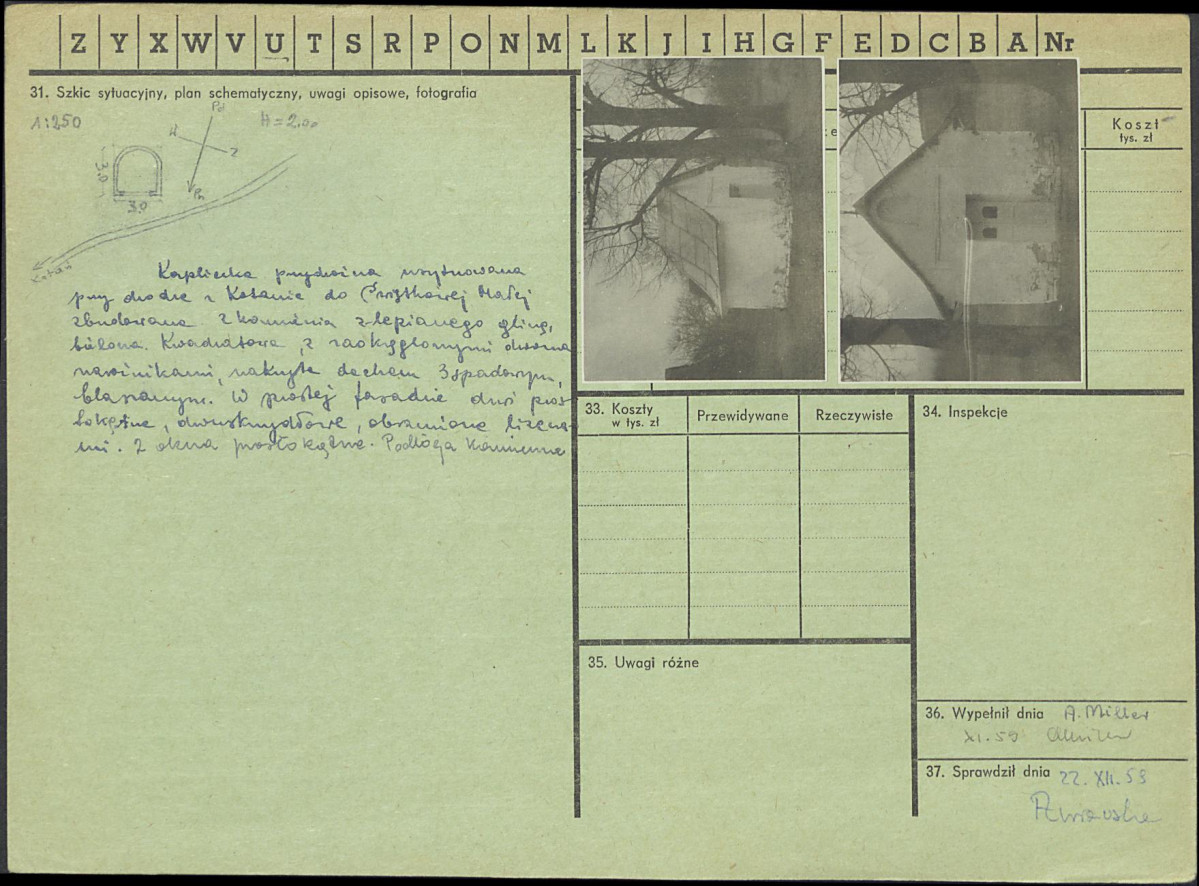 Z Y X W V U T S R P O N M L K J I H G F E D C B A Nr
31. Szkic sytuacyjny, plan schematyczny, uwagi opisowe, fotografia
1:250
H = 2.00
Pd
Z
Pn
3.0
3.0
Kotań
Kapliczka przydrożna usytuowana
przy drodze z Kotania do Świątkowej Małej
zbudowana z kamienia zlepianego gliną,
bielona. Kwadratowa, z zaokrąglonymi dwoma
narożnikami, nakryta dachem 3spadowym,
blaszanym. W prostej fasadzie drzwi pros-
tokątne, dwuskrzydłowe, obramione lizena-
mi. 2 okna prostokątne. Podłoga kamienna
Koszt
tys. zł
33. Koszty
w tys. zł
Przewidywane
Rzeczywiste
34. Inspekcje
35. Uwagi różne
36. Wypełnił dnia A. Miller
XI. 59 AMiller
37. Sprawdził dnia 22. XII. 59